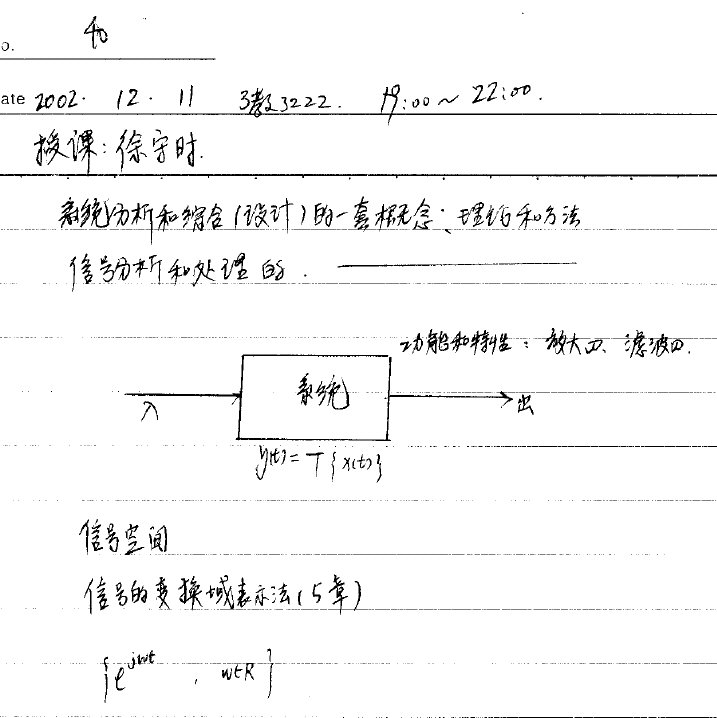 o. 40
ate 2002. 12. 11 3教3222. 19:00~22:00.
授课:徐守时.
系统分析和综合(设计)的一套概念、理论和方法
信号分析和处理的.
功能和特性:放大口、滤波口.
系统
入 出
y(t)=T{x(t)}
信号空间
信号的变换域表示法(5章)
{e^{jωt}, ω∈R}